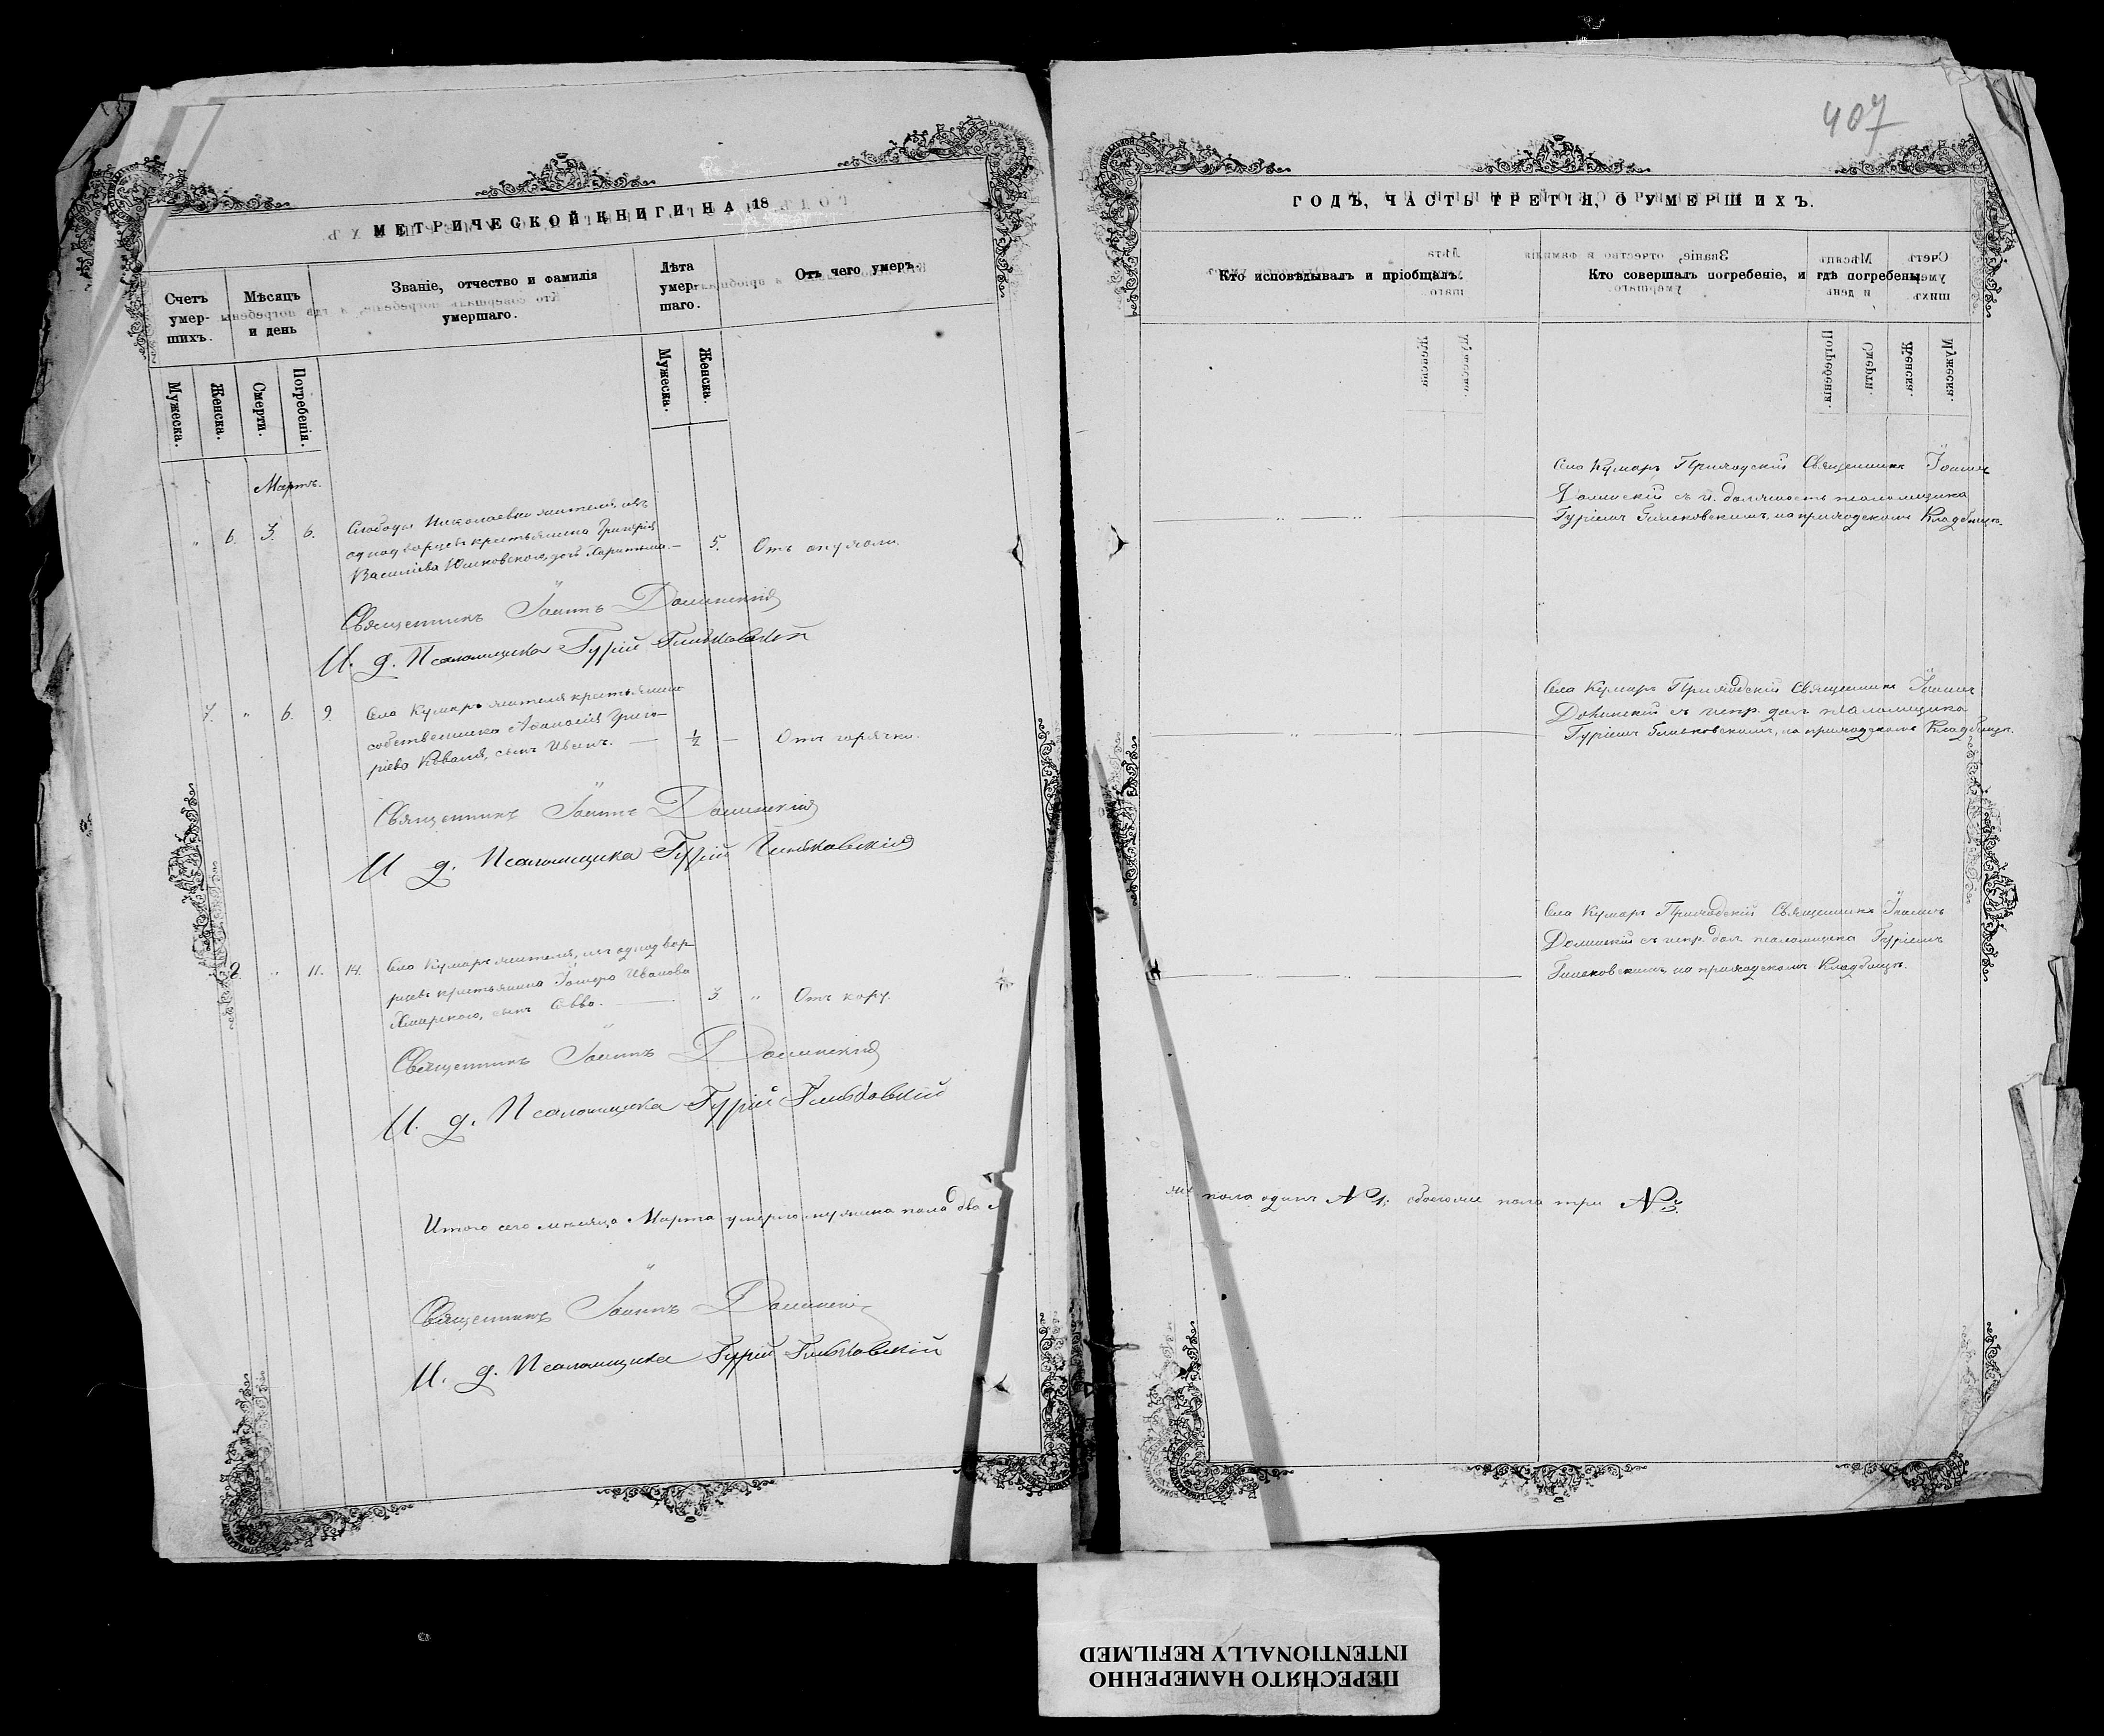 407
МЕТРИЧЕСКОЙ КНИГИ НА 18
Счетъ умер-шихъ.
Мѣсяцъ и день
Званіе, отчество и фамилія умершаго.
Лѣта умер-шаго.
Отъ чего умеръ.
Мужеска.
Женска.
Смерти.
Погребенія.
Мужеска.
Женска.
Мартъ.
" 6. 3. 6.
Слободы Николаевки жителя, изъ
однодворцевъ крестьянина Григорія
Василіева Юшковского, дочь Харитына. — 5. Отъ опухоли.
Священникъ Іоаннъ Долинскій
И. д. Псаломщика Гурій Гиньковскій
7. " 6. 9.
Села Кумаръ жителя крестьянина
собственника Аѳанасія Григо-
ріева Коваля, сынъ Иванъ. — ½ — Отъ горячки.
Священникъ Іоаннъ Долинскій
И д. Псаломщика Гурій Гиньковскій
8. " 11. 14.
Села Кумаръ жителя, изъ однодвор-
цевъ крестьянина Іосифа Иванова
сынъ Савва. — 3 " Отъ кору.
Священникъ Іоаннъ Долинскій
И. д. Псаломщика Гурій Гиньковскій
Итого сего мѣсяца Марта умерло мужеска пола два
Священникъ Іоаннъ Долинскій
И. д. Псаломщика Гурій Гиньковскій
ГОДЪ, ЧАСТЬ ТРЕТІЯ, О УМЕРШИХЪ.
Кто исповѣдывалъ и пріобщалъ.
Кто совершалъ погребеніе, и гдѣ погребены.
Села Кумаръ Приходскій Священникъ Іоаннъ
Долинскій съ и. должность псаломщика
Гуріемъ Гиньковскимъ, на приходскомъ Кладбищѣ.
Села Кумаръ Приходскій Священникъ Іоаннъ
Долинскій съ испр. дол. псаломщика
Гуріемъ Гиньковскимъ, на приходскомъ Кладбищѣ.
Села Кумаръ Приходскій Священникъ Іоаннъ
Долинскій съ испр. дол. псаломщика Гуріемъ
Гиньковскимъ, на приходскомъ Кладбищѣ.
пола одинъ №1. обоего пола три №3.
ПЕРЕСНЯТО НАМЕРЕННО
INTENTIONALLY REFILMED